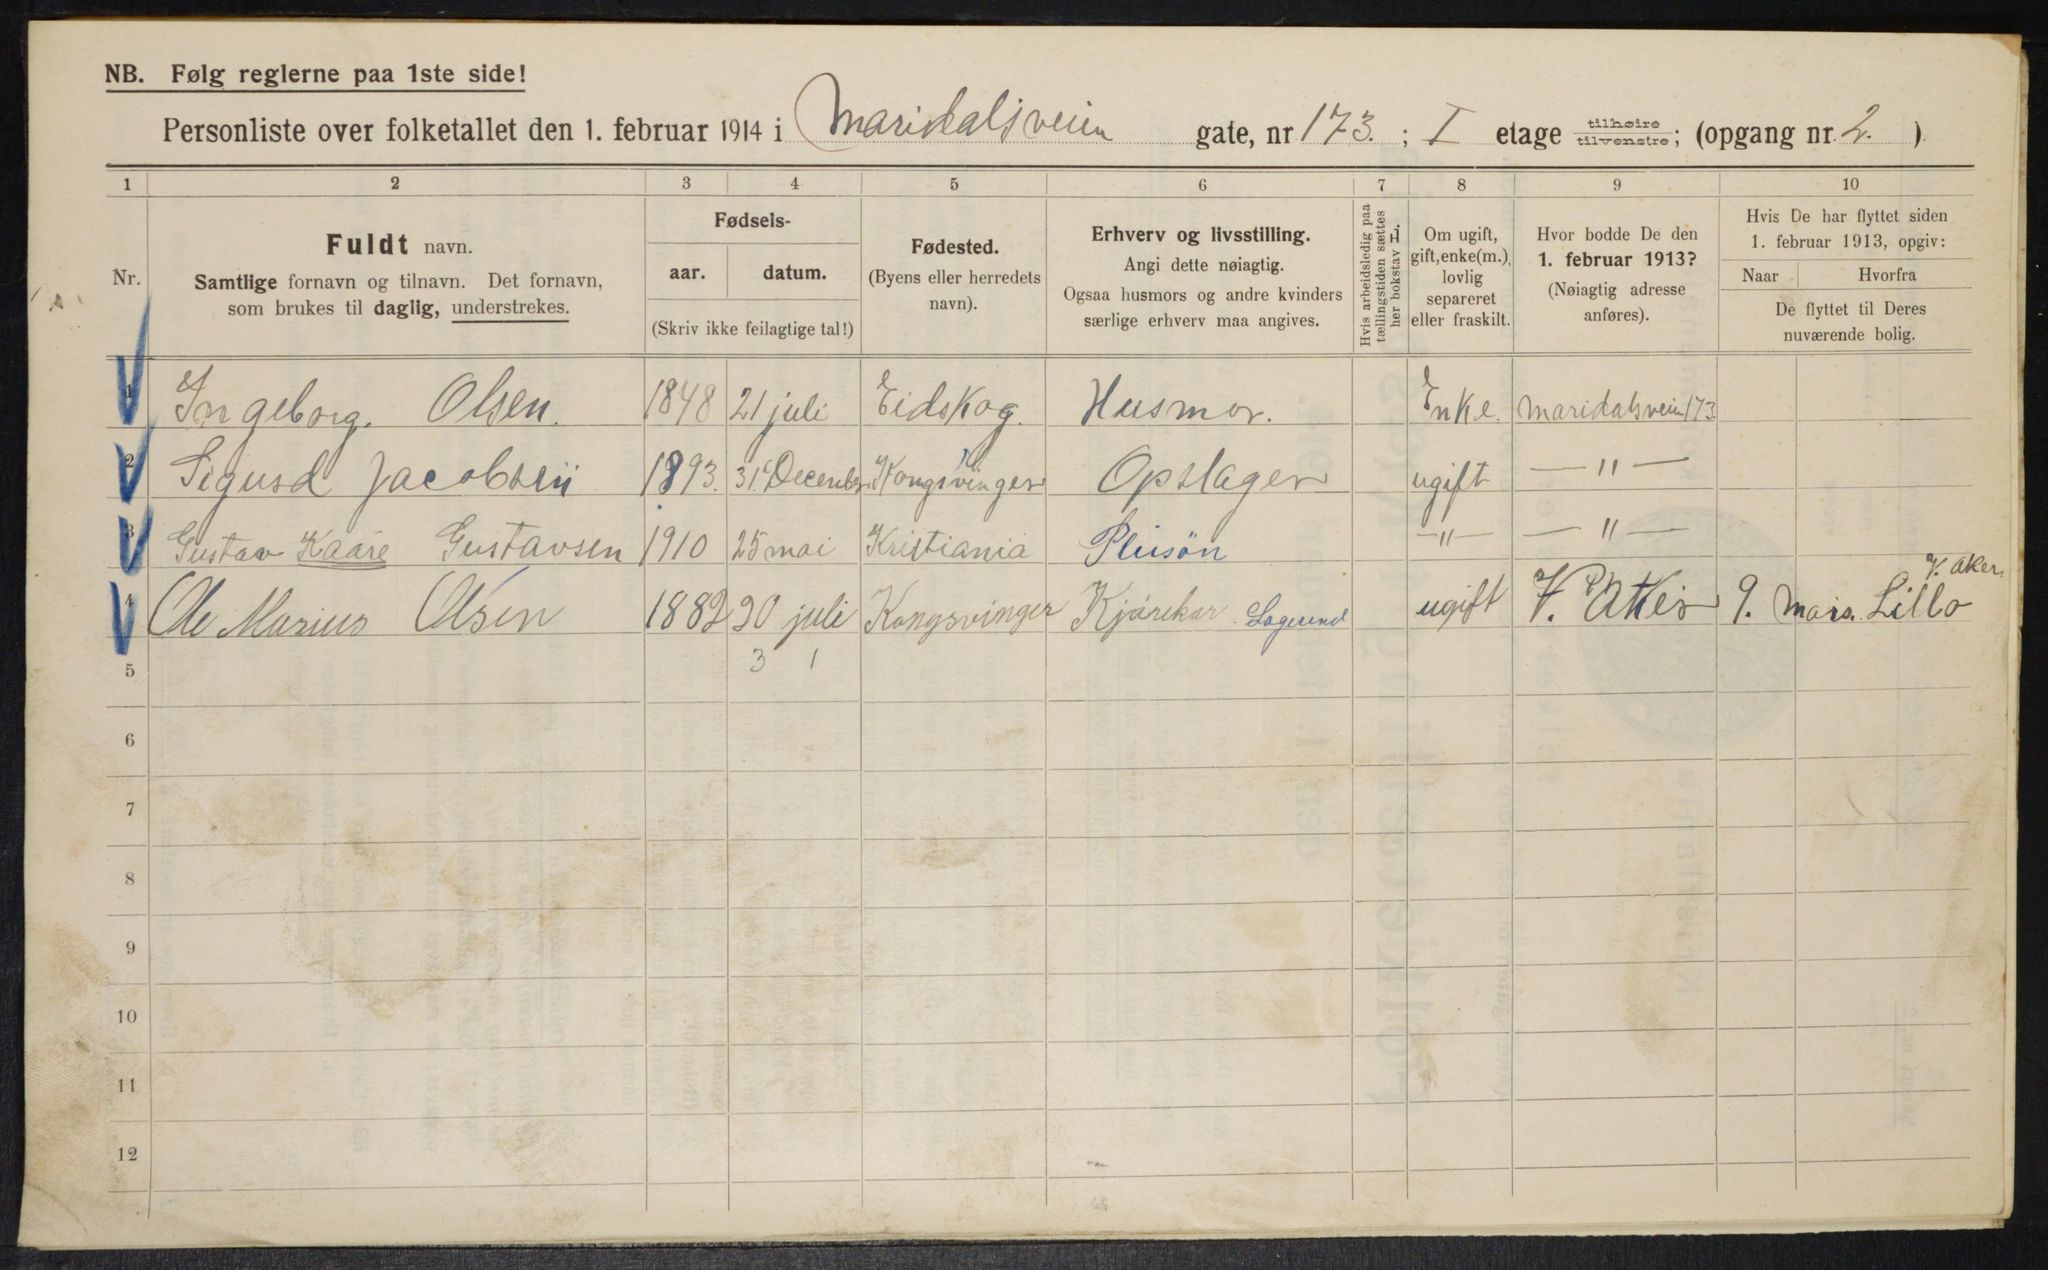 NB. Følg reglerne paa 1ste side!
Personliste over folketallet den 1. februar 1914 i Maridalsveien gate, nr 173. ; I etage tilhøire tilvenstre; (opgang nr. 2. )
1 2 3 4 5 6 7 8 9 10
Nr.
Fuldt navn.
Samtlige fornavn og tilnavn. Det fornavn,
som brukes til daglig, understrekes.
Fødsels-
aar. datum.
(Skriv ikke feilagtige tal!)
Fødested.
(Byens eller herredets
navn).
Erhverv og livsstilling.
Angi dette nøiagtig.
Ogsaa husmors og andre kvinders
særlige erhverv maa angives.
Hvis arbeidsledig paa
tællingstiden sættes
her bokstav L
Om ugift,
gift, enke(m.),
lovlig
separeret
eller fraskilt.
Hvor bodde De den
1. februar 1913?
(Nøiagtig adresse
anføres).
Hvis De har flyttet siden
1. februar 1913, opgiv:
Naar Hvorfra
De flyttet til Deres
nuværende bolig.
1 Ingeborg. Olsen. 1848 21 juli Eidskog. Husmor. Enke. Maridalsveien 173
2 Sigurd Jacobsen 1893. 31. December Kongsvinger Opslager ugift — " —
3 Gustav Kaare Gustavsen 1910 25 mai Kristiania Plusön — " — — " —
V. Aker.
4 Ole Marius Olsen 1882 20 juli Kongsvinger Kjörekar ugift V. Aker 9. Mars. Lillo
3 1
5
6
7
8
9
10
11
12